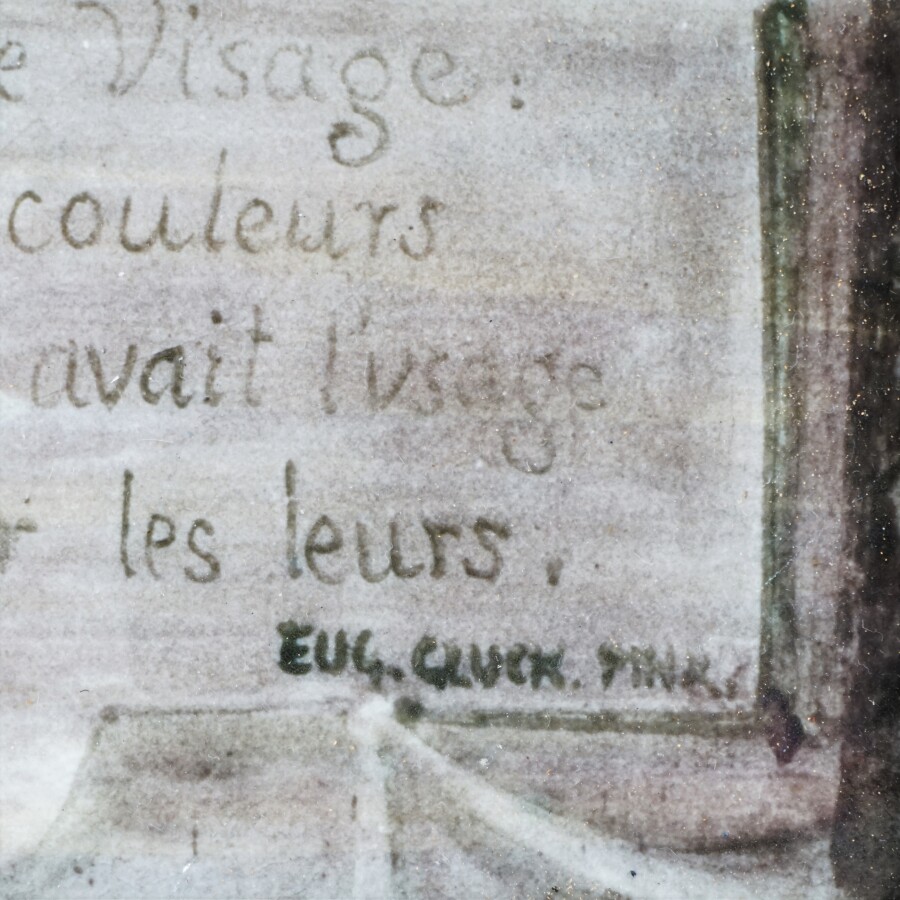 e Visage:
couleurs
avait l'usage
les leurs.
EUG. GLUCK.